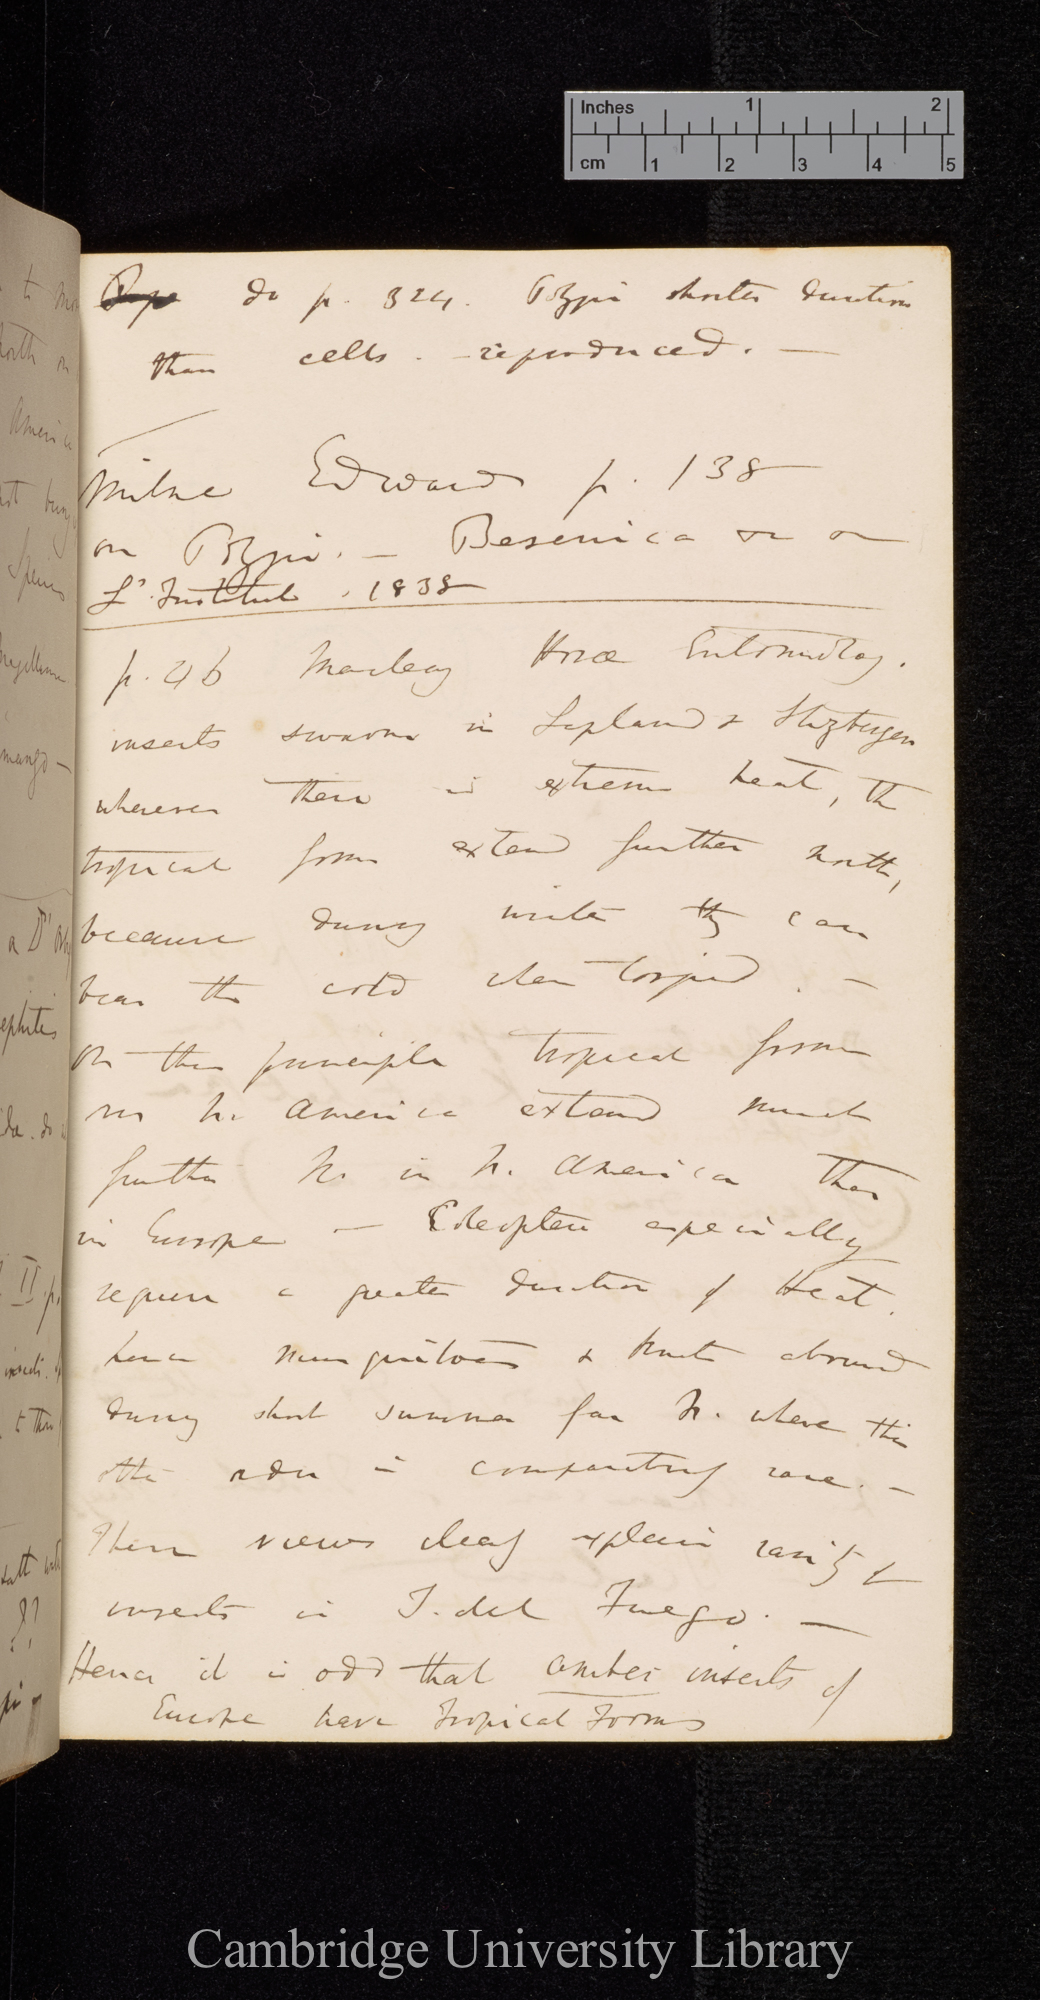 Inches 1 2
cm 1 2 3 4 5
do p. 324. Polypi shorter duration
than cells. – reproduced. —
Milne Edwards p. 138
on Polypi. — Berenicea &c &c
L'Institut. 1838
p. 46 Macleay Horae Entomolog.
insects swarm in Lapland & Spitzbergen
wherever there is extreme heat, the
tropical forms extend further north,
because during winter they can
bear the cold when torpid. —
On this principle tropical forms
in N. America extend much
further N. in N. America than
in Europe — Coleoptera especially
require a greater duration of Heat.
hence musquitoes & knats abound
during short summer far N. where this
other order is comparatively rare. —
These views clearly explain rarity of
insects in T. del Fuego. —
Hence it is odd that amber insects of
Europe have Tropical Forms
Cambridge University Library